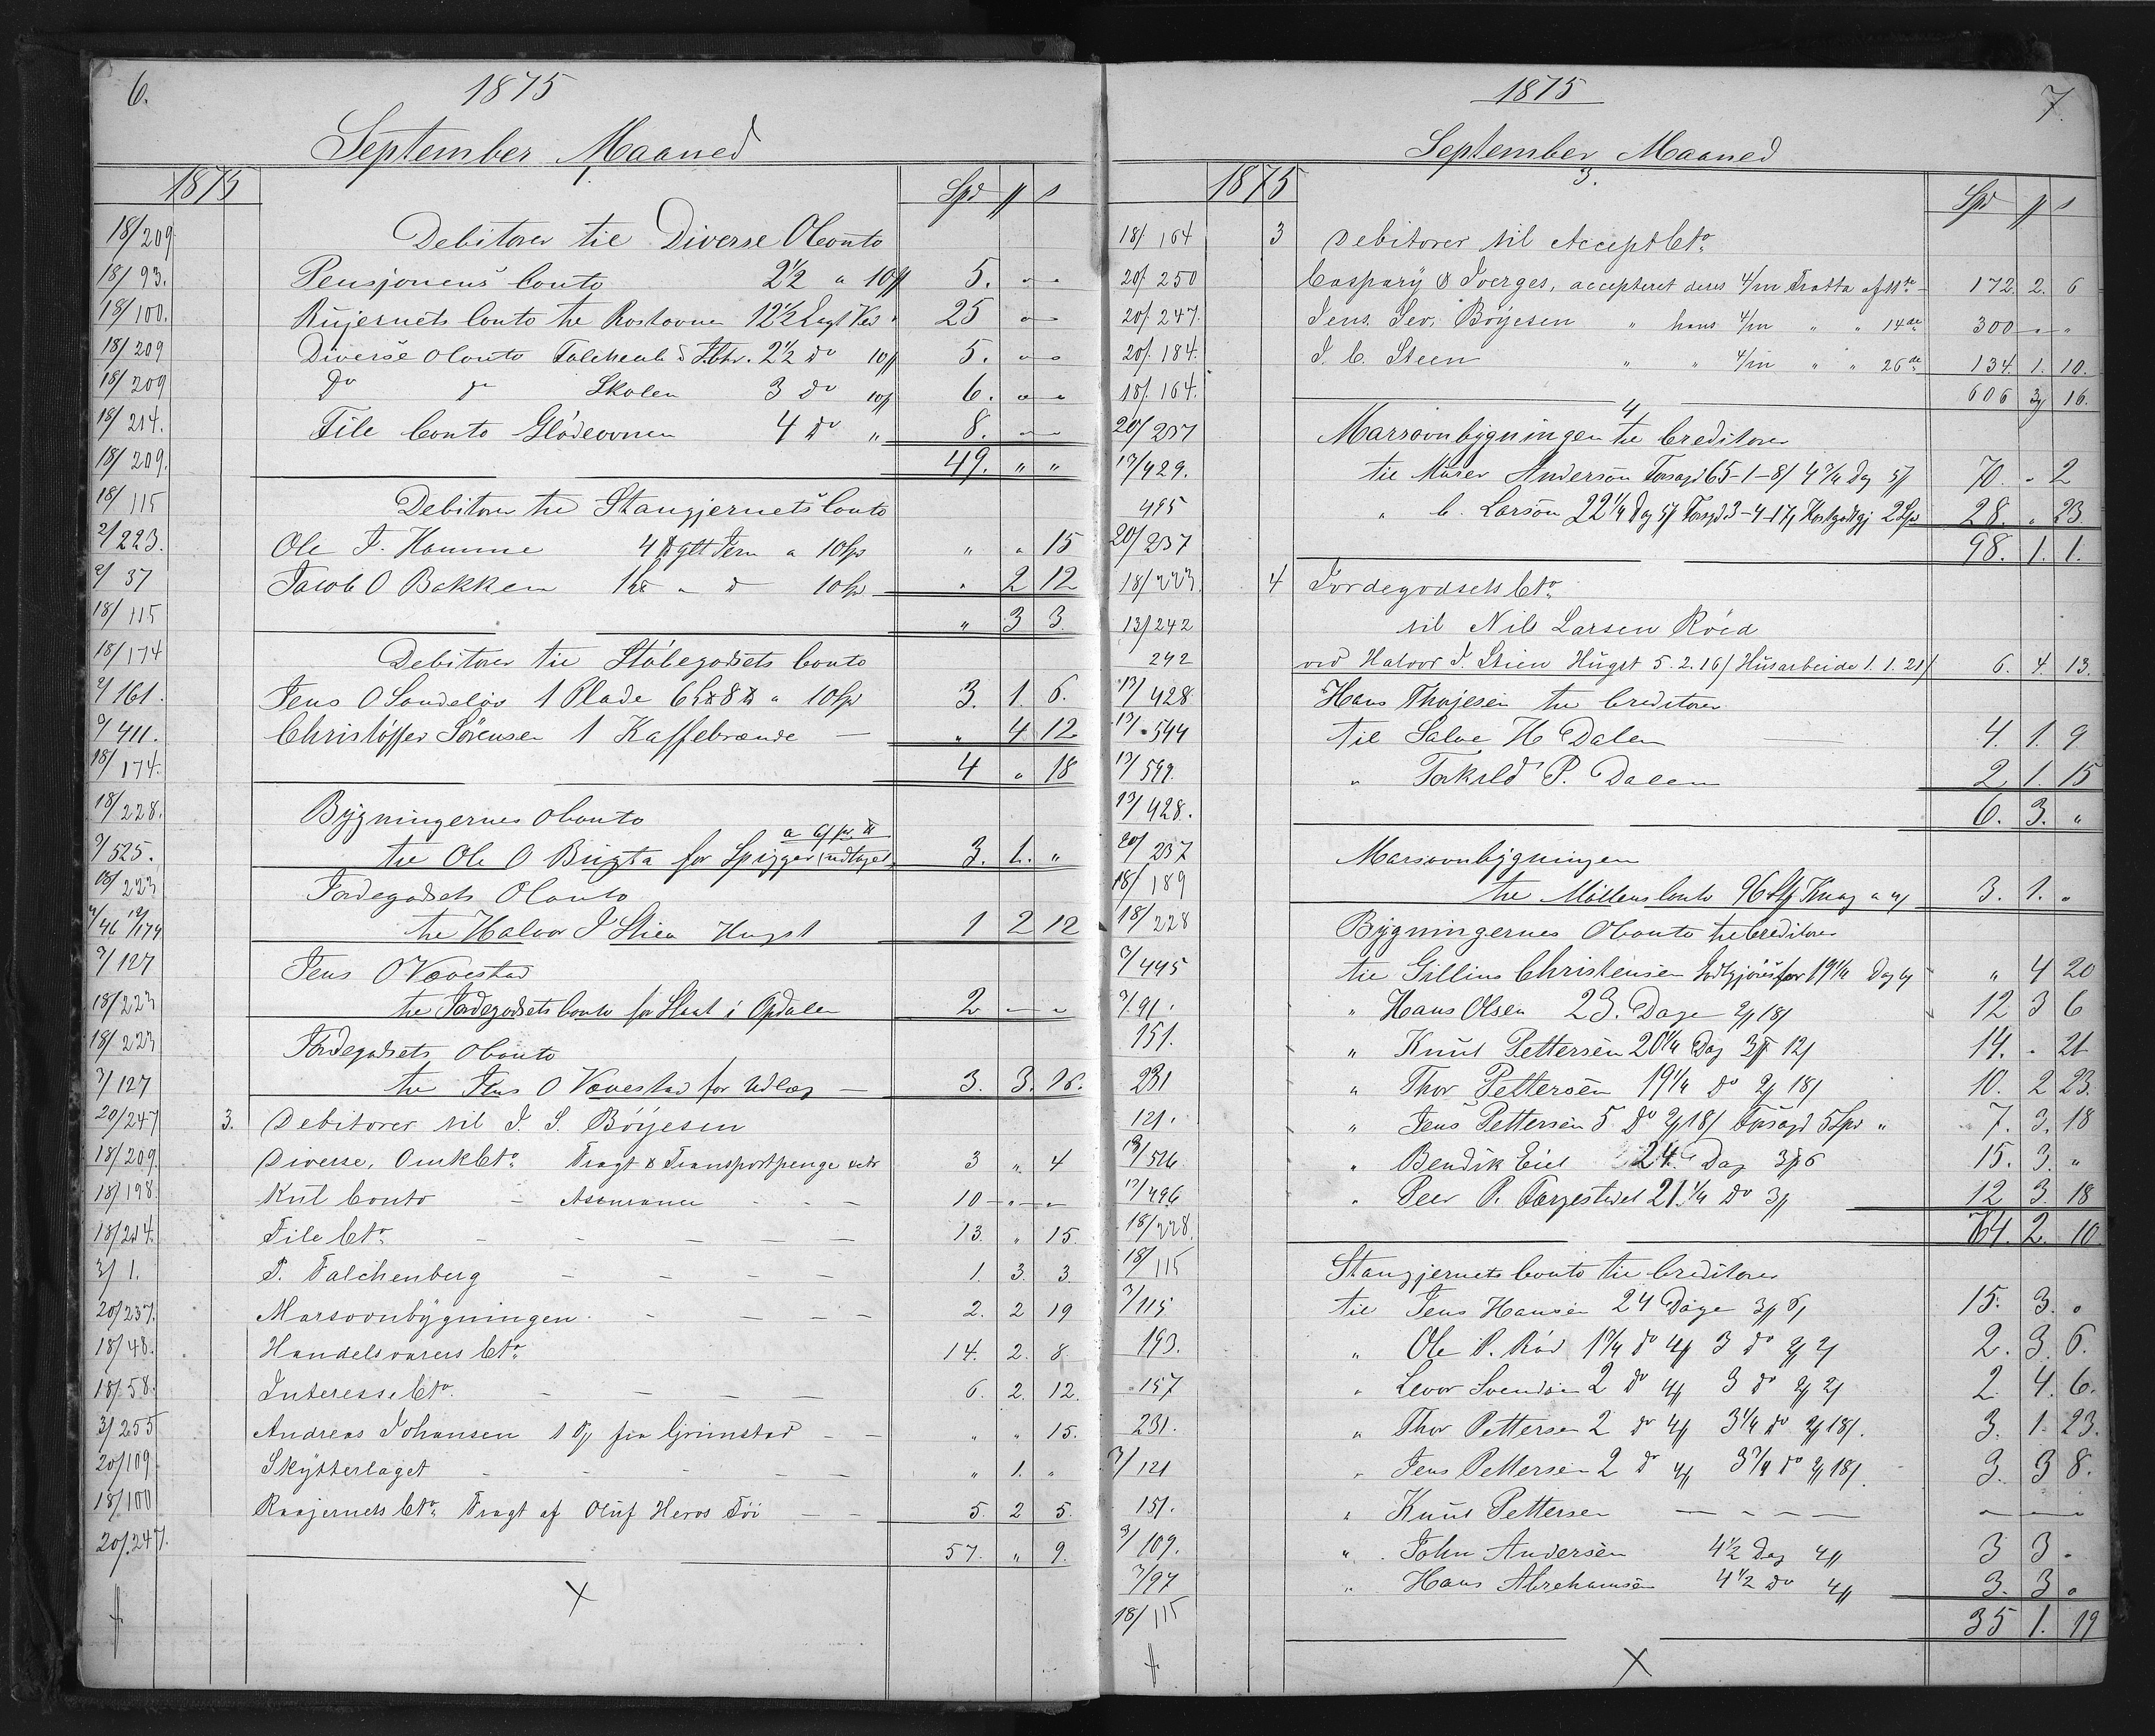 6.
1875
September Maaned
1875 1. Spd ₰ s
18/209 Debitorer til Diverse OConto
18/93. Pensjonens Conto 2½ a 10₰ 5. " "
18/100. Rujernets Conto til Rostovnen 12½ Lagt Ved " 25 " "
18/209 Diverse OConto 2½ do 10₰ 5. " "
18/209 Do d Skolen 3 do 10₰ 6. " "
18/214. File Conto Glödeovnen 4 do " 8. " "
18/209. 49. " "
18/115 Debitorer til Stangjernets Conto
2/223. Ole J. Hamme 4 Jern a 10Spd " " 15
2/37 Jacob O Bakken " d 10Spd " 2 12
18/115 " 3 3.
18/174 Debitorer til Stöbegodsets Conto
2/161. Jens O Sandelöv 1 Plade a 10Spd 3. 1. 6.
9/411. Christoffer Sörensen 1 Kaffebrænde — " 4. 12.
18/174. 4 " 18
18/228. Bygningernes OConto
9/525. til Ole O Bugta for Spigger (udtaget) 3. 1. "
18/223 Jordegodsets OConto
til Halvor J Stien Hugst 1 2 12
9/127 Jens O Vovestad
18/223 til Jordegodsets Conto for Slaat i Opdalen 2 — "
18/223 Jordegodsets OConto
3/127 til Jens O Vovestad for Udlæg — 3. 3. 16.
20/247 3. Debitorer til J. S. Böyesen
18/209. Diverse, Omk Cto. Fragt & Transportpenge 3 " 4
18/198. Kul Conto - Assurance - - - 10 — " —
18/214. File Cto. - - - - - 13. " 15.
3/1. P. Falchenberg - - - - 1. 3. 3.
20/237. Marsovnbygningen. - - - - 2. 2 19
18/48. Handelsvarers Cto. 14. 2. 8
18/58. Interesse Cto. - - - - 6. 2. 12.
3/255 Andreas Johansen fra Grimstad - - " " 15.
20/109 Skytterlaget - - - - " 1. "
18/100 Raajernets Cto. Fragt af Oluf Heros - - 5. 2 5.
20/247. 57. " 9.
1875
7.
September Maaned
1875 3. Spd ₰ s
18/164 3 Debitorer til Accept Cto.
20/250 Caspary & Sverges, accepteret deres 4/m Tratta af 11te - 172. 2. 6
20/247. Jens. Sev. Böyesen " hans 4/m " " 14de 300 — " "
20/184. J. C. Steen " " 4/m " " 26de 134. 1. 10.
18/164. 606 3 16.
4
20/237 Marsovnbygningen til Creditorer
13/429. til Murer Andersön 65-1-8/ 4¾ Dag 70. " 2
495 " C. Larsön 22¼ Dag 3-4-17 28. " 23.
20/237 98. 1. 1.
18/223 4 Jordegodsets Cto.
13/242 til Nils Larsen Röed
242 ved Halvor J. Stien Hugst 5.2.16/ Husarbeide 1.1.21/ 6. 4. 13.
13/428 Hans Thorjesen til Creditorer
13/544 til Salve H Dalen 4. 1. 9
13/599. " Torkild P. Dalen 2 1. 15
13/428. 6. 3. "
20/237 Marsovnbygningen
18/189 til Möllens Conto 96 3. 1. "
18/228 Bygningernes OConto til Creditorer
9/445 til Gillius Christensen for 19¼ Dag " 4 20
7/91. " Hans Olsen 23. Dage 2₰18/ 12 3 6
151. " Knut Pettersen 20¼ Dag 3₰ 12/ 14. " 21
231 " Thor Pettersen 19¼ do 2₰ 18/ 10. 2 23.
121. " Jens Pettersen 5 do 2₰18/ 5Spd " 7. 3. 18
13/526. " Bendik Eiel 24. Dag 3₰6 15. 3. "
13/496 " Peer P. 21.¼ do 3₰ 12 3. 18
18/228. 64. 2. 10
18/115 Stangjernets Conto til Creditorer
7/115 til Jens Hansen 24 Dage 3₰ 6/ 15. 3. "
193. " Ole P. Röd 1¾ do 4₰ 3 do 2₰ 2/ 2. 3. 6.
157 " Levor Svendsen 2 do 4₰ 3 do 2₰ 2/ 2. 4. 6.
231. " Thor Pettersen 2 do 4₰ 3¼ do 2₰18/. 3. 1. 23.
7/121 " Jens Pettersen 2 do 4₰ 3¾ do 2₰18/. 3. 3 8.
151. " Knut Pettersen — - - — " — "
9/109. " John Andersen 4½ Dag 4₰ 3 3 "
7/97 " Hans Abrehamsen 4½ do 4₰ 3. 3. "
18/115 35 1. 19